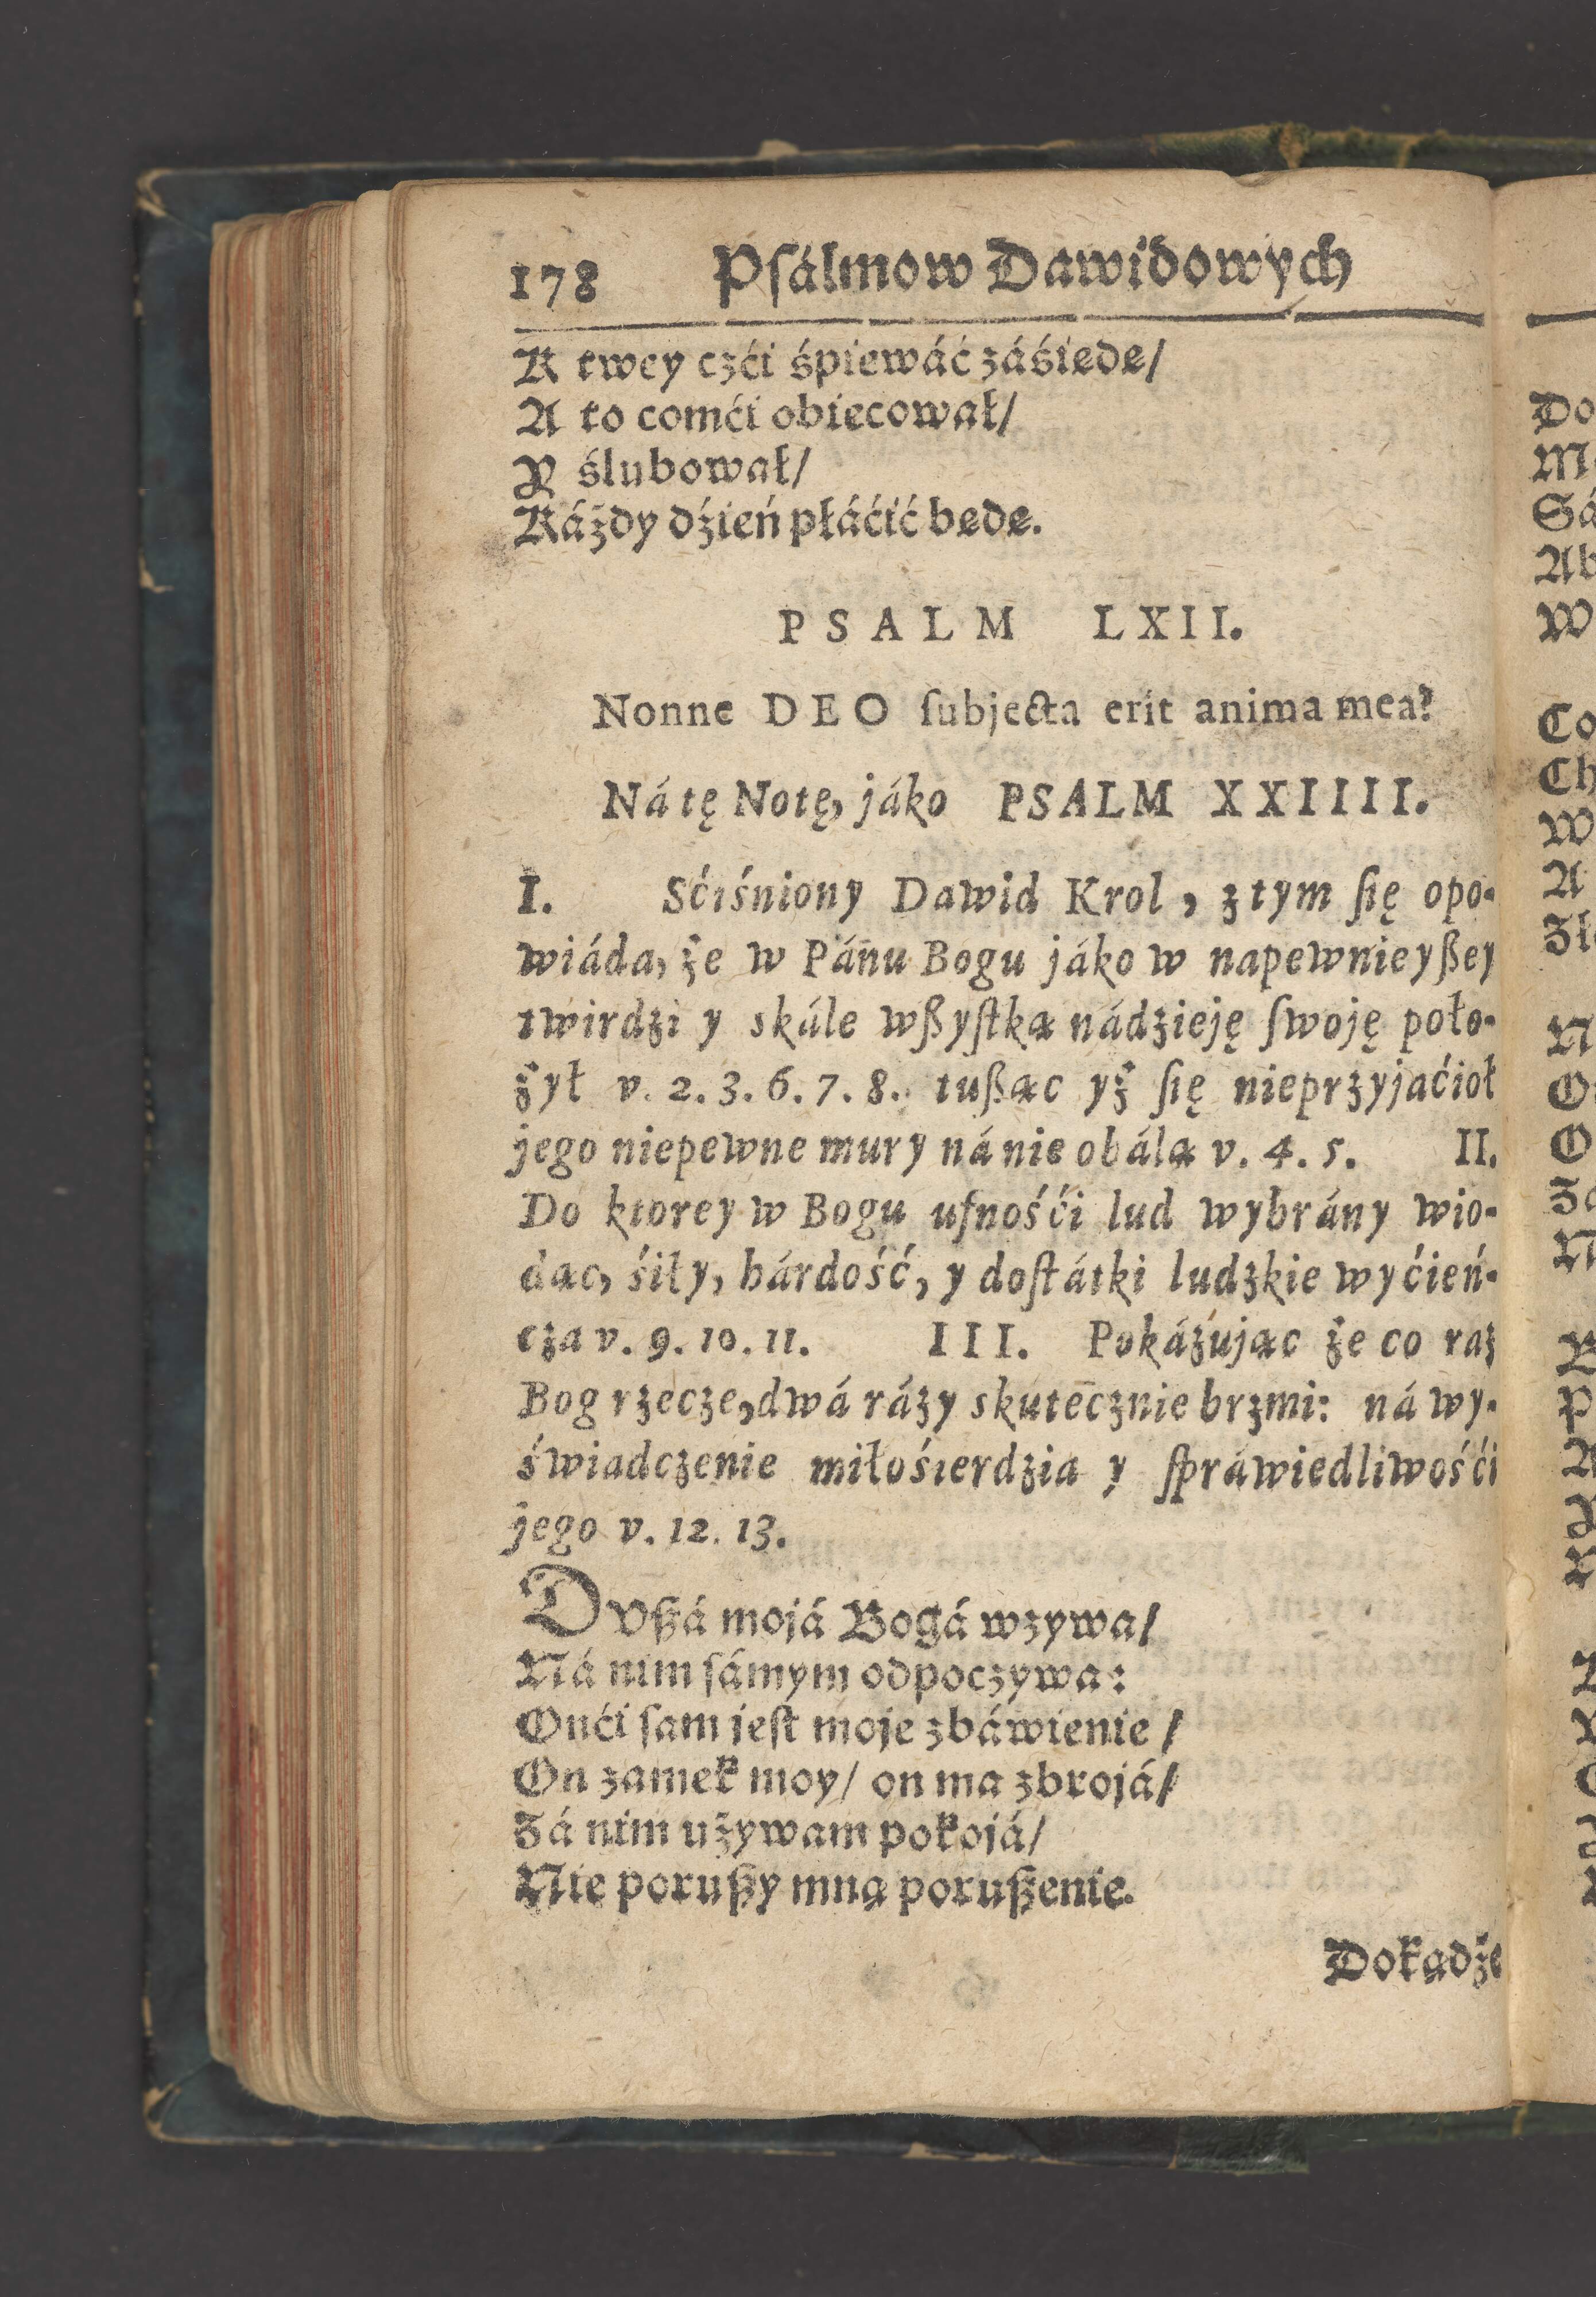 178 Psálmow Dawidowych
K twey czći śpiewáć záśiędę/
A to comći obiecował/
Y ślubował/
Káżdy dźień płáćić będę.
PSALM LXII.
Nonne DEO ſubjecta erit anima mea?
Ná tę Notę, jáko PSALM XXIIII.
I. Sćiśniony Dawid Krol, z tym ſię opo-
wiáda, że w Pánu Bogu jáko w napewnieyßey
twirdzi y skále wßyſtką nádzieję ſwoję poło-
żył v. 2. 3. 6. 7. 8. tußąc yż ſię nieprzyjaćioł
jego niepewne mury ná nie obálą v. 4. 5. II.
Do ktorey w Bogu ufnośći lud wybrány wio-
dąc, śiły, hárdość, y doſtátki ludzkie wyćień-
cza v. 9. 10. 11. III. Pokázując że co raz
Bog rzecze, dwá rázy skutecznie brzmi: ná wy-
świadczenie miłośierdzia y ſpráwiedliwośći
jego v. 12. 13.
DVßá mojá Bogá wzywa/
Ná nim ſámym odpoczywa:
Onći ſam jeſt moje zbáwienie/
On zamek moy/ on ma zbrojá/
Zá nim używam pokojá/
Nie porußy mną porußenie.
Dokądże
Do
Sá
Ab
W
Co
Ch
W
A
N
O
N
P
A